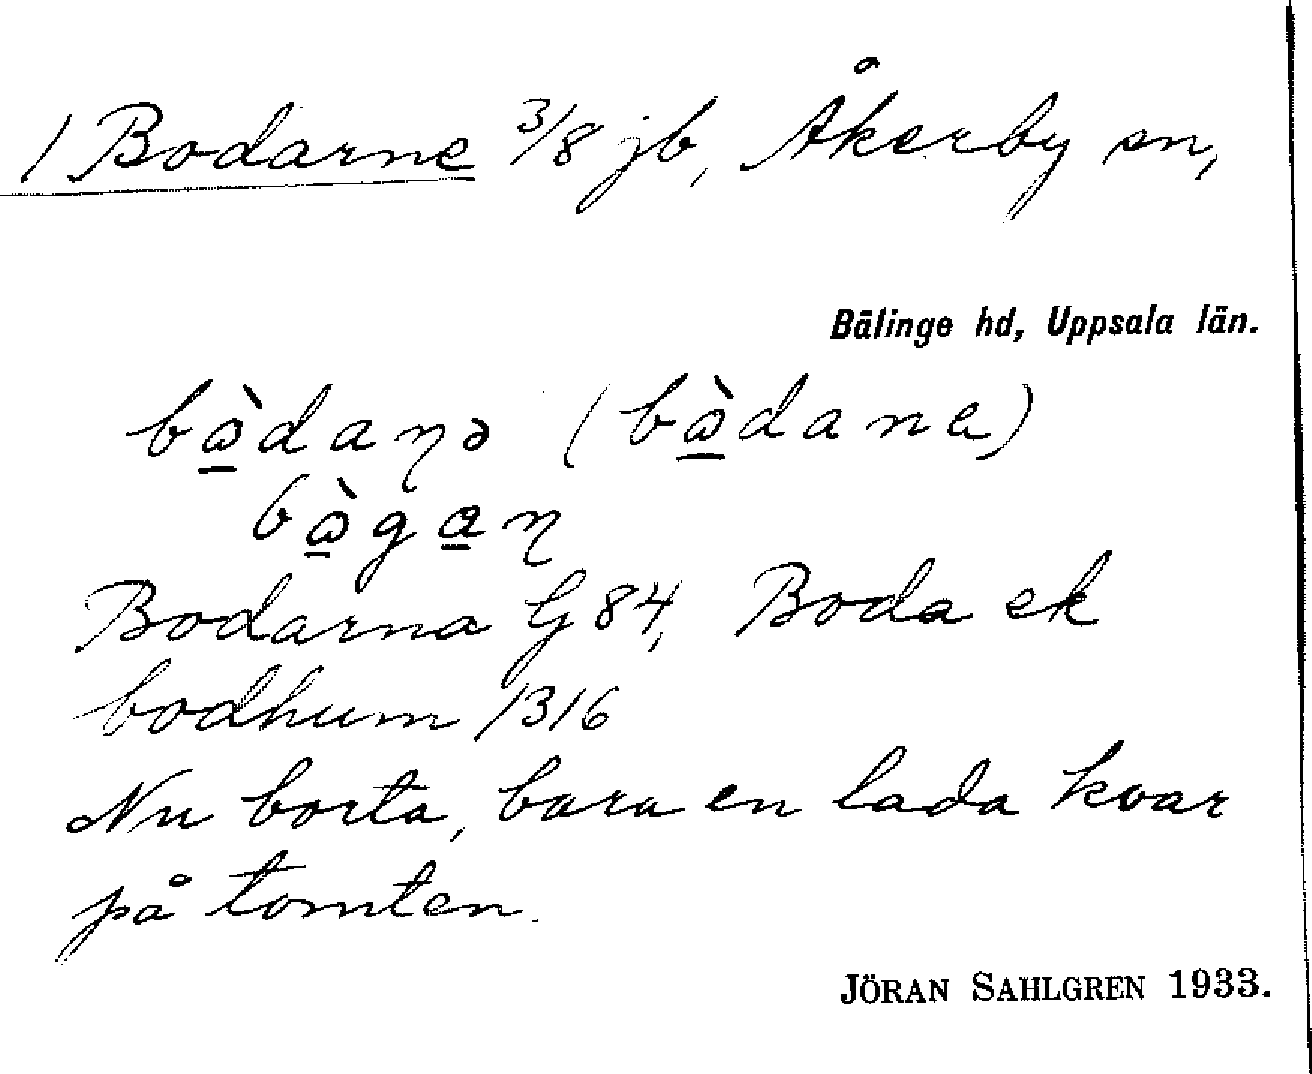 1 Bodarne 3/8 jb, Åkerby sn,
Bälinge hd, Uppsala län.
bὼ̲daꞑə (bὼ̲dane)
bὼ̲ga̲ꞑ
Bodarna G 84, Boda ek
bodhum 1316
Nu borta, bara en lada kvar
på tomten.
JÖRAN SAHLGREN 1933.